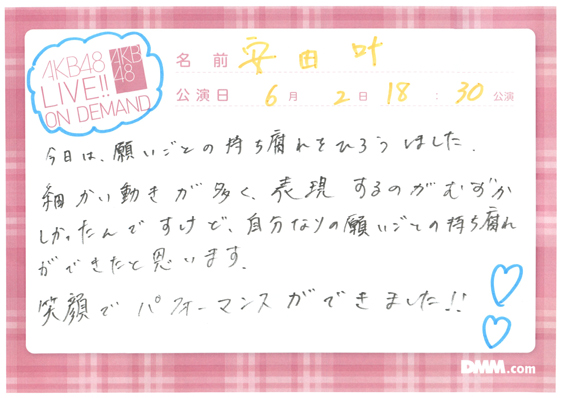 AKB48
LIVE!!
ON DEMAND
AKB
48
名前 安田 叶
公演日 6月 2日 18:30 公演
今日は、願いごとの持ち腐れをひろうしました.
細かい動きが多く、表現するのがむずか
しかったんですけど、自分なりの願いごとの持ち腐れ
ができたと思います.
笑顔でパフォーマンスができました!!
DMM.com